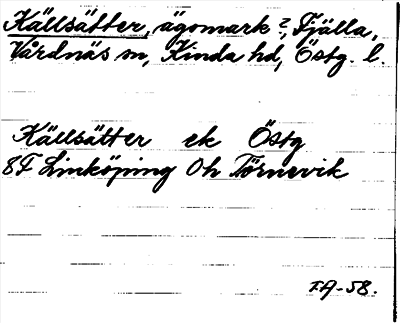 Källsätter, ägomark?, Fjälla,
Vårdnäs sn, Kinda hd, Östg. l.
Källsätter ek Östg
8F Linköping 0h Törnevik
FA-58.